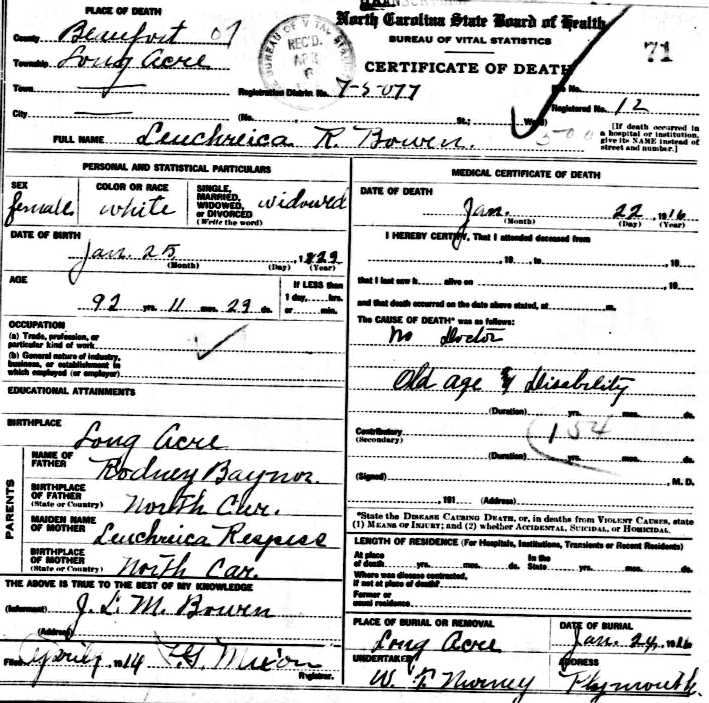 PLACE OF DEATH
County Beaufort 07
Township Long Acre
Town
City
North Carolina State Board of Health
BUREAU OF VITAL STATISTICS
CERTIFICATE OF DEATH
71
BUREAU OF VITAL
REC'D.
APR
6
Registration District No. 7-5-077
Registered No. 12
(No. St.; Ward)
[If death occurred in a hospital or institution, give its NAME instead of street and number.]
FULL NAME Leuchreica R. Bowen.
PERSONAL AND STATISTICAL PARTICULARS
SEX
female
COLOR OR RACE
white
SINGLE, MARRIED, WIDOWED, or DIVORCED
(Write the word)
widowed
DATE OF BIRTH
Jan. 25
(Month) (Day) (Year)
AGE
92 yrs. 11 mos. 29 ds.
If LESS than
1 day, hrs.
or min.
OCCUPATION
(a) Trade, profession, or
particular kind of work
(b) General nature of industry,
business, or establishment in
which employed (or employer)
EDUCATIONAL ATTAINMENTS
BIRTHPLACE
Long Acre
PARENTS
NAME OF FATHER
Rodney Baynor.
BIRTHPLACE OF FATHER
(State or Country)
North Car.
MAIDEN NAME OF MOTHER
Leuchreica Respess
BIRTHPLACE OF MOTHER
(State or Country)
North Car.
THE ABOVE IS TRUE TO THE BEST OF MY KNOWLEDGE
(Informant) J. L. M. Bowen
(Address)
Filed 1914
Registrar.
MEDICAL CERTIFICATE OF DEATH
DATE OF DEATH
Jan. 22, 1916
(Month) (Day) (Year)
I HEREBY CERTIFY, That I attended deceased from
, 19 , to , 19
that I last saw h alive on , 19
and that death occurred on the date above stated, at m.
The CAUSE OF DEATH* was as follows:
No Doctor
Old age & Disability
(Duration) yrs. mos. ds.
Contributory
(Secondary)
154
(Duration) yrs. mos. ds.
(Signed) , M. D.
, 191 (Address)
*State the DISEASE CAUSING DEATH, or, in deaths from VIOLENT CAUSES, state
(1) MEANS OF INJURY; and (2) whether ACCIDENTAL, SUICIDAL, or HOMICIDAL.
LENGTH OF RESIDENCE (For Hospitals, Institutions, Transients or Recent Residents)
At place of death yrs. mos. ds. In the State yrs. mos. ds.
Where was disease contracted,
if not at place of death?
Former or
usual residence
PLACE OF BURIAL OR REMOVAL
Long Acre
DATE OF BURIAL
Jan. 24, 1916
UNDERTAKER
W. F.
ADDRESS
Plymouth.